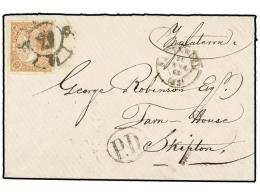 Ynglaterra,
George Robinson Esqr.
Farn-House
Skipton
P.D